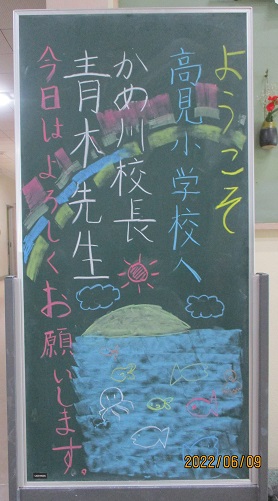 ようこそ
高見小学校へ
かめ川校長
青木先生
今日はよろしくお願いします。
2022/06/09